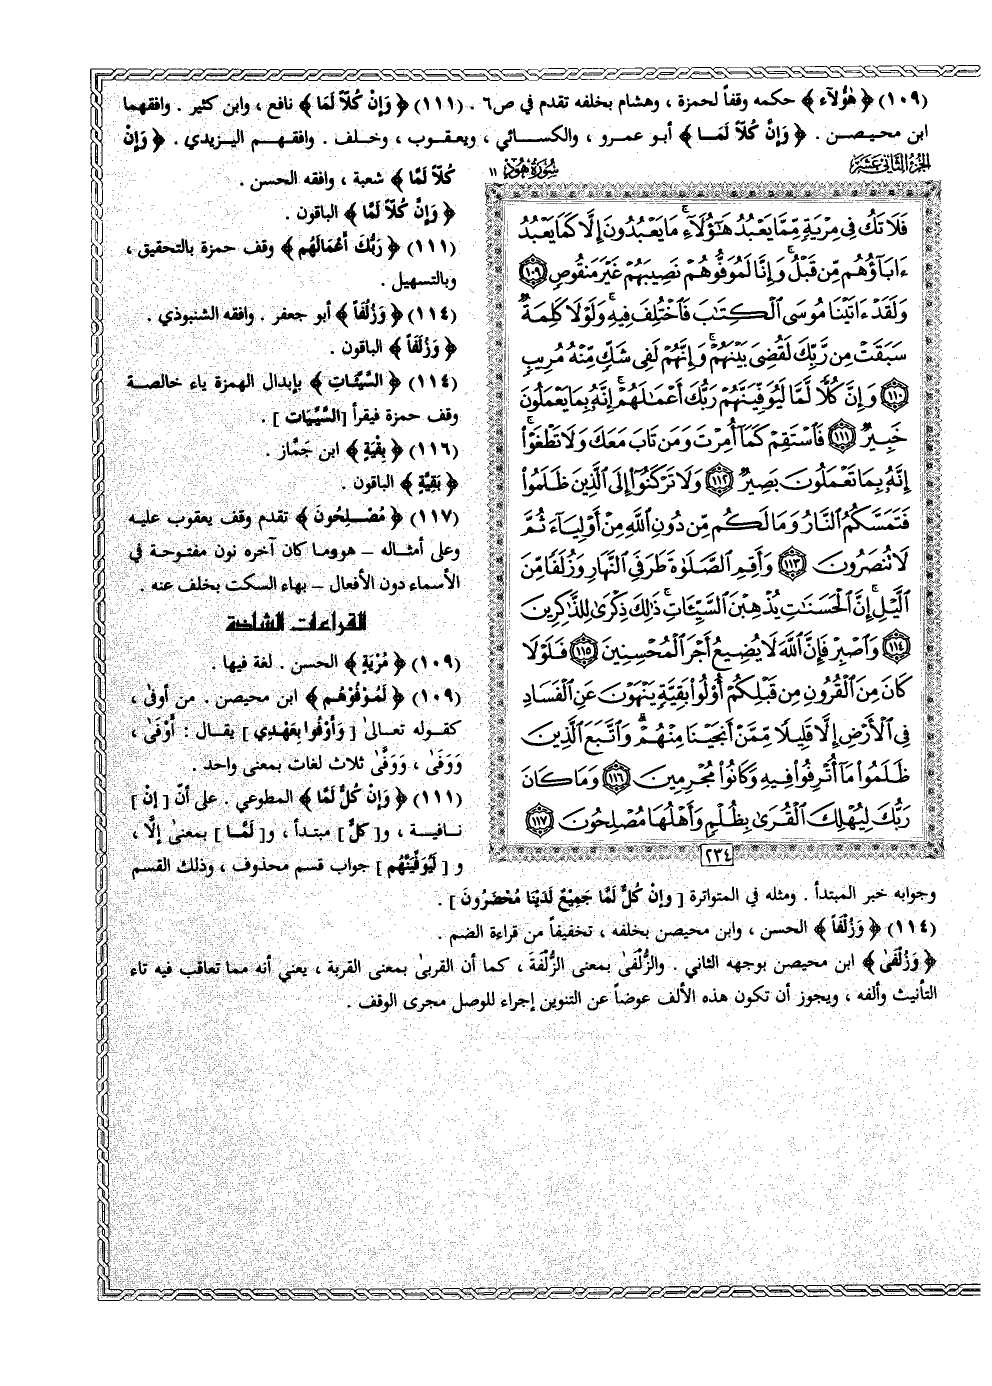 (١٠٩) ﴿ هٰؤُلآء ﴾ حكمه وقفاً لحمزة ، وهشام بخلفه تقدم في ص٦ . (١١١) ﴿ وَإِنْ كُلآ لَمَا ﴾ نافع ، وابن كثير . وافقهما
ابن محيصن . ﴿ وَإِنَّ كُلاً لَمَا ﴾ أبو عمرو ، والكسائي ، ويعقوب ، وخلف . وافقهم اليزيدي . ﴿ وَإِنْ
الجزء الثاني عشر
سورة هود ١١
كُلاًّ لَمَّا ﴾ شعبة ، وافقه الحسن .
﴿ وَإِنَّ كُلاًّ لَمَّا ﴾ الباقون .
(١١١) ﴿ رَبُّكَ أَعْمَالَهُم ﴾ وقف حمزة بالتحقيق ،
وبالتسهيل .
(١١٤) ﴿ وَزُلُفاً ﴾ أبو جعفر . وافقه الشنبوذي .
﴿ وَزُلَفاً ﴾ الباقون .
(١١٤) ﴿ السَّيِّئَاتِ ﴾ بإبدال الهمزة ياء خالصة
وقف حمزة فيقرأ [السَّيِّيَات ] .
(١١٦) ﴿ بِقْيَةٍ ﴾ ابن جَمَّاز .
﴿ بَقِيَّةٍ ﴾ الباقون .
(١١٧) ﴿ مُصْلِحُونَ ﴾ تقدم وقف يعقوب عليه
وعلى أمثاله – هووما كان آخره نون مفتوحة في
الأسماء دون الأفعال – بهاء السكت بخلف عنه .
القراءات الشاذة
(١٠٩) ﴿ مُرْيَةٍ ﴾ الحسن . لغة فيها .
(١٠٩) ﴿ لَمُوْفُوْهُم ﴾ ابن محيصن . من أوفى ،
كقوله تعالىٰ [ وَأَوْفُوا بِعَهْدِي ] يقال : أَوْفَىٰ ،
وَوَفَىٰ ، وَوَفَّىٰ ثلاث لغات بمعنى واحد .
(١١١) ﴿ وَإِنْ كُلٌّ لَمَّا ﴾ المطوعي . على أنّ [ إِنْ ]
نافية ، و[ كلٌّ ] مبتدأ ، و[ لَمَّا ] بمعنىٰ إلَّا ،
و [ لَيُوَفِّيَنَّهُم ] جواب قسم محذوف ، وذلك القسم
فَلَا تَكُ فِي مِرْيَةٍ مِّمَّا يَعْبُدُ هَٰٓؤُلَآءِ ۚ مَا يَعْبُدُونَ إِلَّا كَمَا يَعْبُدُ
ءَابَآؤُهُم مِّن قَبْلُ ۚ وَإِنَّا لَمُوَفُّوهُمْ نَصِيبَهُمْ غَيْرَ مَنقُوصٍ ١٠٩
وَلَقَدْ ءَاتَيْنَا مُوسَى ٱلْكِتَٰبَ فَٱخْتُلِفَ فِيهِ ۚ وَلَوْلَا كَلِمَةٌ
سَبَقَتْ مِن رَّبِّكَ لَقُضِىَ بَيْنَهُمْ ۚ وَإِنَّهُمْ لَفِى شَكٍّ مِّنْهُ مُرِيبٍ
١١٠ وَإِنَّ كُلًّا لَّمَّا لَيُوَفِّيَنَّهُمْ رَبُّكَ أَعْمَٰلَهُمْ ۚ إِنَّهُۥ بِمَا يَعْمَلُونَ
خَبِيرٌ ١١١ فَٱسْتَقِمْ كَمَآ أُمِرْتَ وَمَن تَابَ مَعَكَ وَلَا تَطْغَوْا۟ ۚ
إِنَّهُۥ بِمَا تَعْمَلُونَ بَصِيرٌ ١١٢ وَلَا تَرْكَنُوٓا۟ إِلَى ٱلَّذِينَ ظَلَمُوا۟
فَتَمَسَّكُمُ ٱلنَّارُ وَمَا لَكُم مِّن دُونِ ٱللَّهِ مِنْ أَوْلِيَآءَ ثُمَّ
لَا تُنصَرُونَ ١١٣ وَأَقِمِ ٱلصَّلَوٰةَ طَرَفَىِ ٱلنَّهَارِ وَزُلَفًا مِّنَ
ٱلَّيْلِ ۚ إِنَّ ٱلْحَسَنَٰتِ يُذْهِبْنَ ٱلسَّيِّـَٔاتِ ۚ ذَٰلِكَ ذِكْرَىٰ لِلذَّٰكِرِينَ
١١٤ وَٱصْبِرْ فَإِنَّ ٱللَّهَ لَا يُضِيعُ أَجْرَ ٱلْمُحْسِنِينَ ١١٥ فَلَوْلَا
كَانَ مِنَ ٱلْقُرُونِ مِن قَبْلِكُمْ أُو۟لُوا۟ بَقِيَّةٍ يَنْهَوْنَ عَنِ ٱلْفَسَادِ
فِى ٱلْأَرْضِ إِلَّا قَلِيلًا مِّمَّنْ أَنجَيْنَا مِنْهُمْ ۗ وَٱتَّبَعَ ٱلَّذِينَ
ظَلَمُوا۟ مَآ أُتْرِفُوا۟ فِيهِ وَكَانُوا۟ مُجْرِمِينَ ١١٦ وَمَا كَانَ
رَبُّكَ لِيُهْلِكَ ٱلْقُرَىٰ بِظُلْمٍ وَأَهْلُهَا مُصْلِحُونَ ١١٧
٢٣٤
وجوابه خبر المبتدأ . ومثله في المتواترة [ وإِنْ كُلٌّ لَمَّا جَمِيْعٌ لَدَيْنَا مُحْضَرُونَ ] .
(١١٤) ﴿ وَزُلْفاً ﴾ الحسن ، وابن محيصن بخلفه ، تخفيفاً من قراءة الضم .
﴿ وَزُلْفَىٰ ﴾ ابن محيصن بوجهه الثاني . والزُّلْفَىٰ بمعنى الزُّلْفَة ، كما أن القربىٰ بمعنى القربة ، يعني أنه مما تعاقب فيه تاء
التأنيث وألفه ، ويجوز أن تكون هذه الألف عوضاً عن التنوين إجراء للوصل مجرى الوقف .